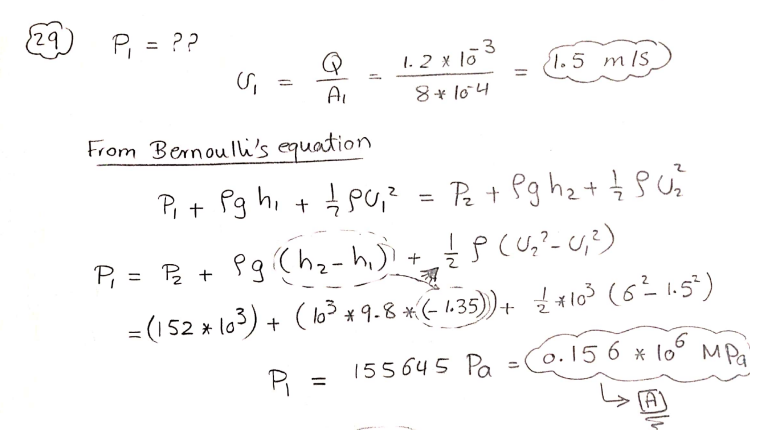 29 P₁ = ??
υ₁ = Q / A₁ = 1.2 × 10⁻³ / 8 * 10⁻⁴ = 1.5 m/s
From Bernoulli's equation
P₁ + ρg h₁ + ½ ρυ₁² = P₂ + ρg h₂ + ½ ρ υ₂²
P₁ = P₂ + ρg (h₂ - h₁) + ½ ρ (υ₂² - υ₁²)
= (152 * 10³) + (10³ * 9.8 * (-1.35)) + ½ * 10³ (6² - 1.5²)
P₁ = 155645 Pa = 0.156 * 10⁶ MPa
↳ A